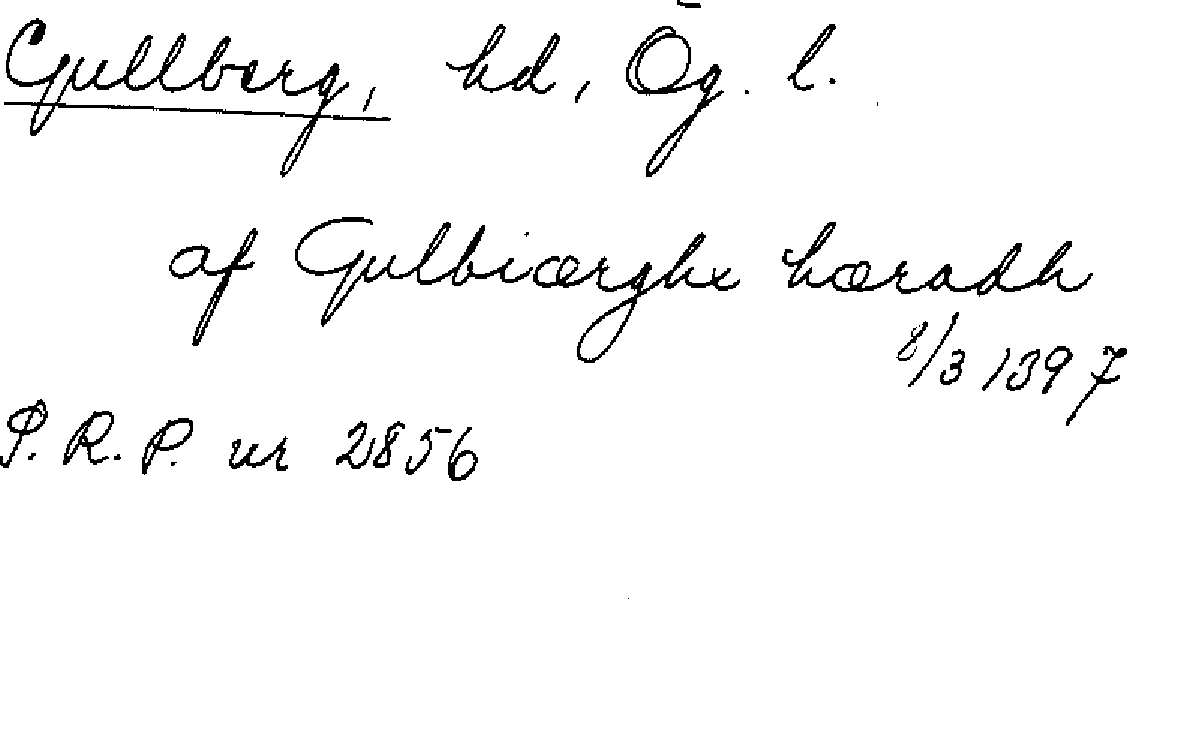 Gullberg, hd, Ög. l.
af Gulbiærghx hæradh
8/3 1397
S.R.P. nr 2856